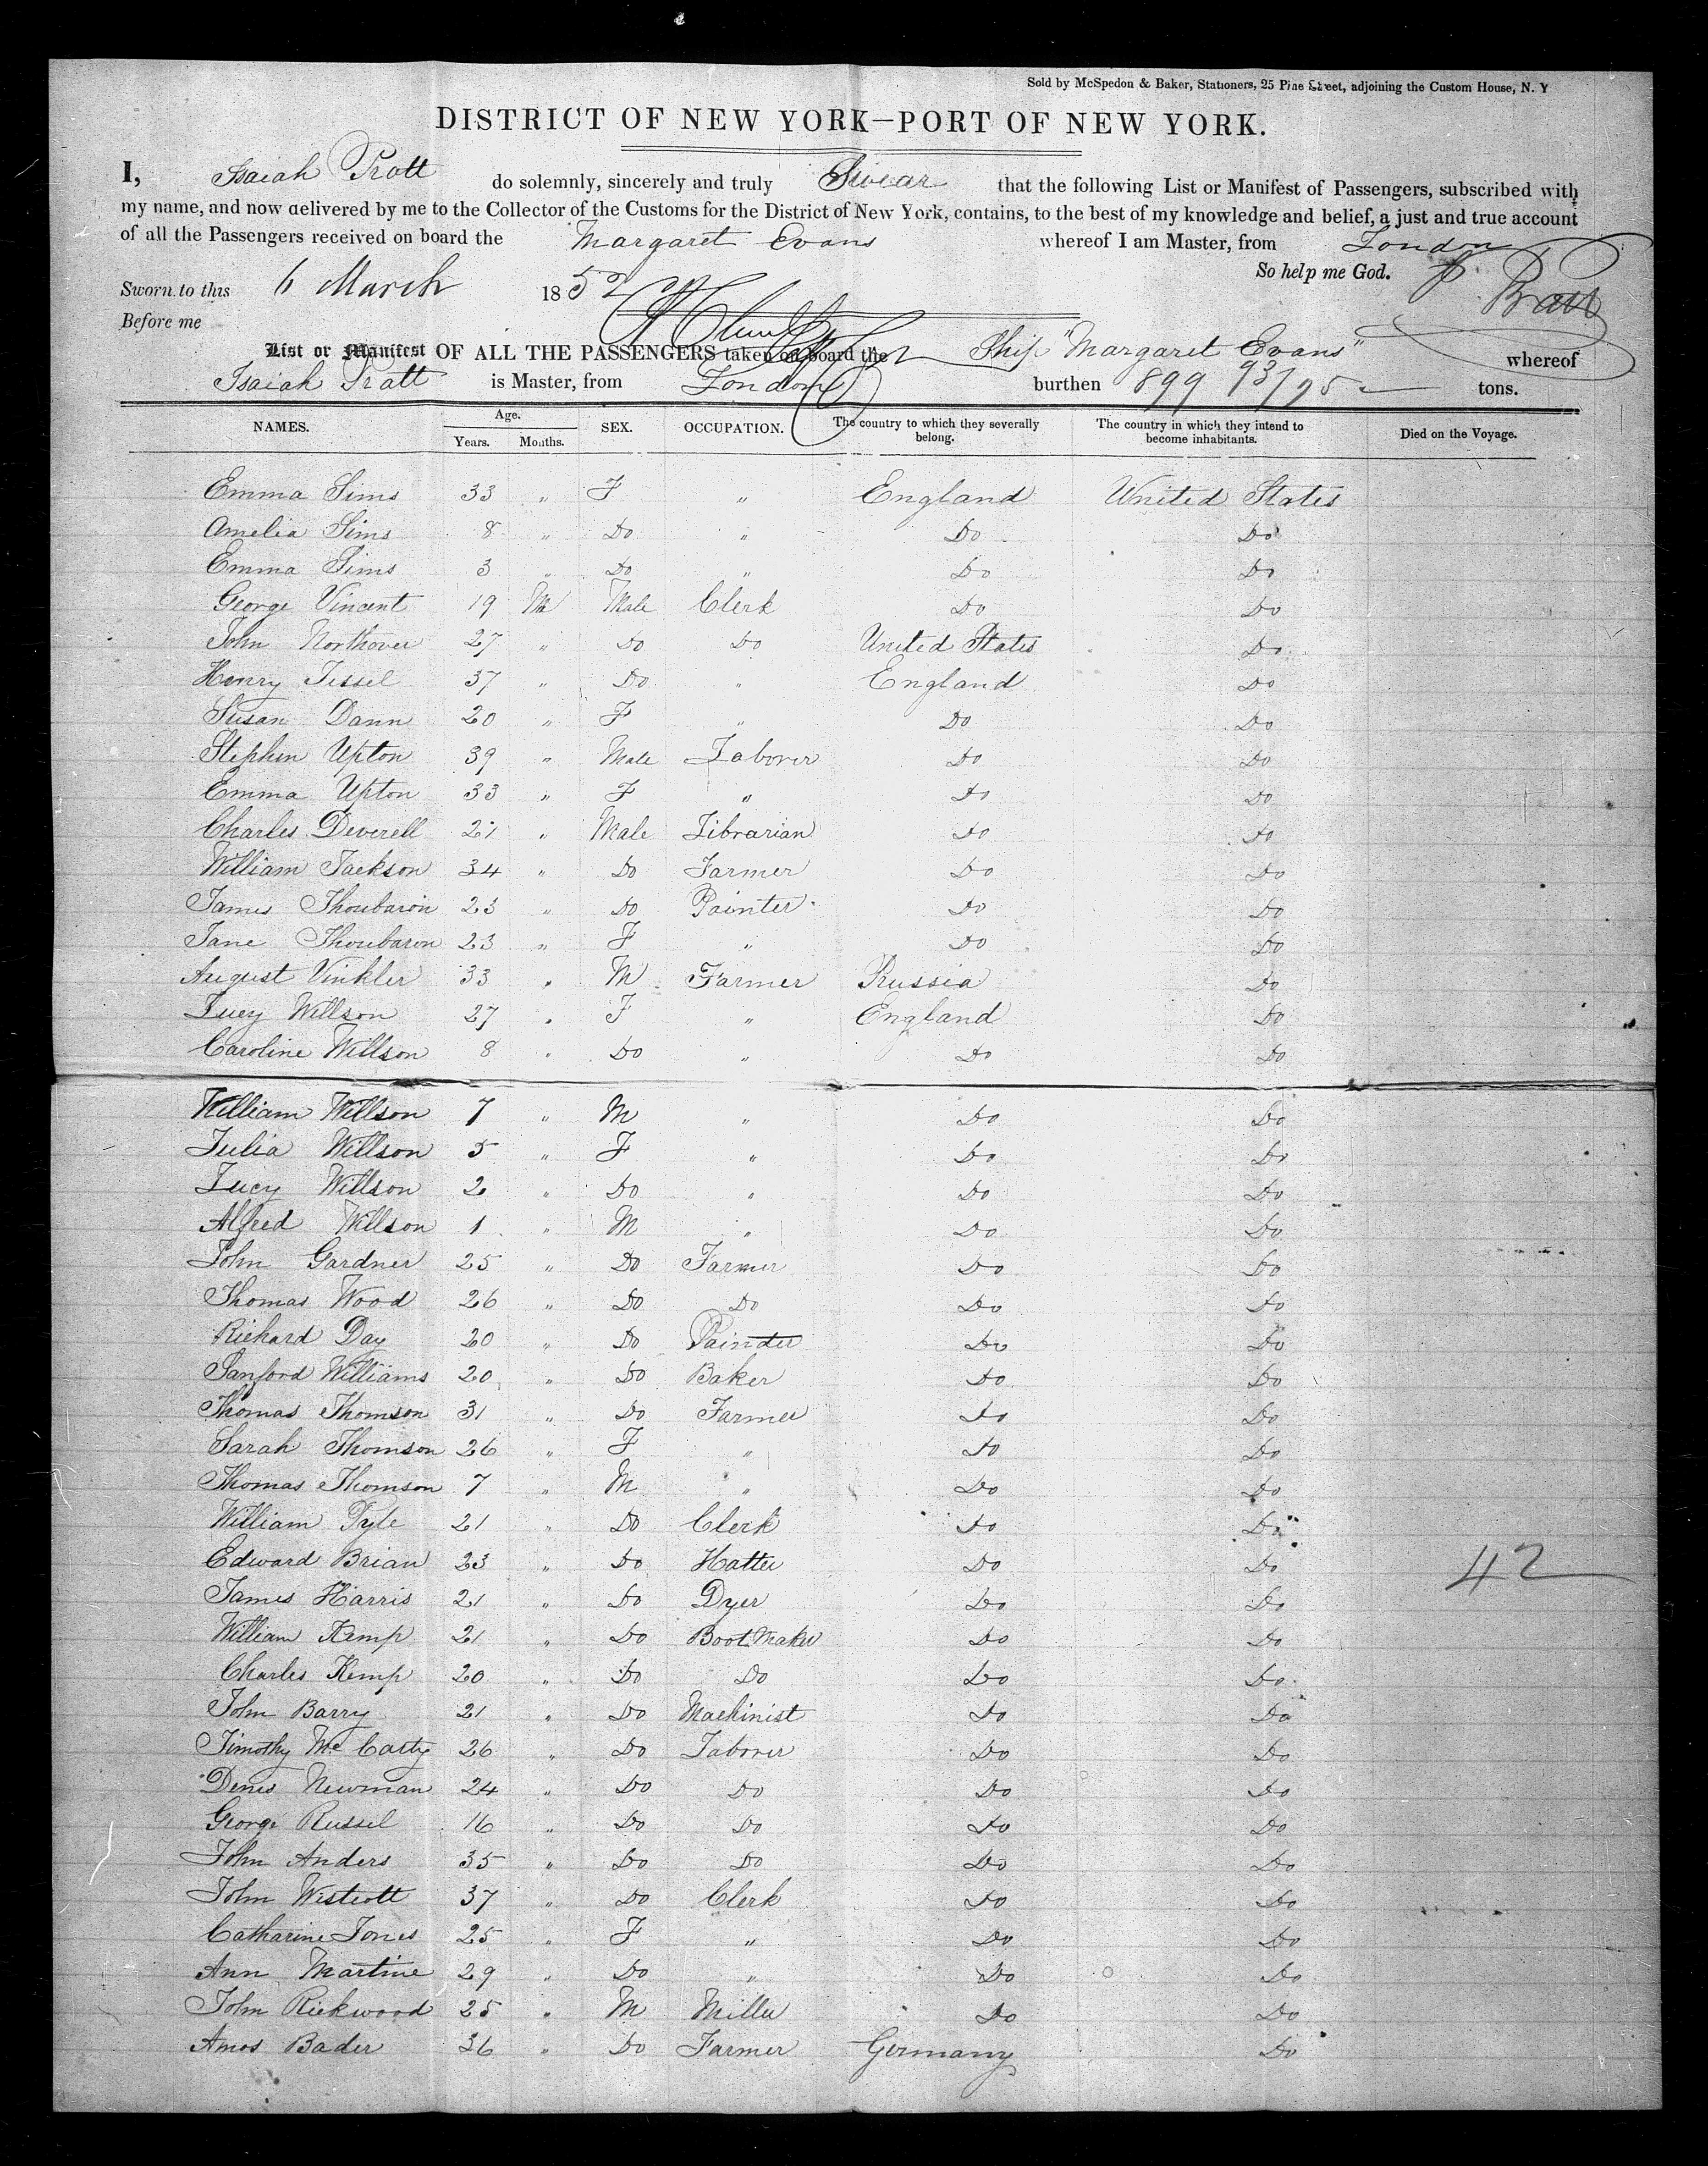 Sold by McSpedon & Baker, Stationers, 25 Pine Street, adjoining the Custom House, N. Y
DISTRICT OF NEW YORK—PORT OF NEW YORK.
I, Isaiah Pratt do solemnly, sincerely and truly Swear that the following List or Manifest of Passengers, subscribed with
my name, and now delivered by me to the Collector of the Customs for the District of New York, contains, to the best of my knowledge and belief, a just and true account
of all the Passengers received on board the Margaret Evans whereof I am Master, from London
So help me God. Pratt
Sworn to this 6 March 1852
Before me
List or Manifest OF ALL THE PASSENGERS taken on board the Ship "Margaret Evans" whereof
Isaiah Pratt is Master, from London burthen 899 93/95 tons.
NAMES. Age. Years. Months. SEX. OCCUPATION. The country to which they severally belong. The country in which they intend to become inhabitants. Died on the Voyage.
Emma Sims 33 " F " England United States
Amelia Sims 8 " Do " Do Do
Emma Sims 3 " Do " Do Do
George Vincent 19 M Male Clerk Do Do
John Northover 27 " Do Do United States Do
Henry Tessel 37 " Do " England Do
Susan Dann 20 " F " Do Do
Stephen Upton 39 " Male Laborer Do Do
Emma Upton 33 " F " Do Do
Charles Deverell 21 " Male Librarian Do Do
William Jackson 34 " Do Farmer Do Do
James Thoubaron 23 " Do Painter Do Do
Jane Thoubaron 23 " F " Do Do
August Vinkler 33 " M Farmer Russia Do
Lucy Willson 27 " F " England Do
Caroline Willson 8 " Do " Do Do
William Willson 7 " M " Do Do
Julia Willson 5 " F " Do Do
Lucy Willson 2 " Do " Do Do
Alfred Willson 1 " M " Do Do
John Gardner 25 " Do Farmer Do Do
Thomas Wood 26 " Do Do Do Do
Richard Day 20 " Do Painter Do Do
Sanford Williams 20 " Do Baker Do Do
Thomas Thomson 31 " Do Farmer Do Do
Sarah Thomson 26 " F " Do Do
Thomas Thomson 7 " M " Do Do
William Pyle 21 " Do Clerk Do Do
Edward Brian 23 " Do Hatter Do Do
James Harris 21 " Do Dyer Do Do
42
William Kemp 21 " Do Boot Maker Do Do
Charles Kemp 20 " Do Do Do Do
John Barry 21 " Do Machinist Do Do
Timothy McCarty 26 " Do Laborer Do Do
Denis Newman 24 " Do Do Do Do
George Russel 16 " Do Do Do Do
John Anders 35 " Do Do Do Do
John Westcott 37 " Do Clerk Do Do
Catharine Jones 25 " F " Do Do
Ann Martine 29 " Do " Do Do
John Rickwood 25 " M Miller Do Do
Amos Bader 36 " Do Farmer Germany Do